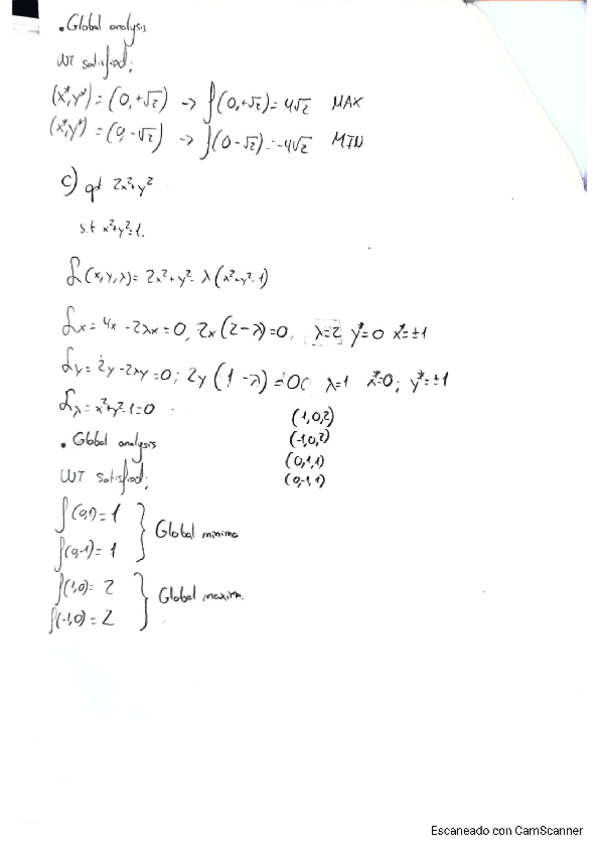 • Global analysis
WT satisfied;
(x*,y*) = (0,+√2) -> f(0,+√2) = 4√2 MAX
(x*,y*) = (0,-√2) -> f(0-√2) = -4√2 MIN
c) opt 2x²+y²
s.t x²+y²=1.
L(x,y,λ) = 2x²+y²-λ(x²+y²-1)
Lx = 4x - 2λx = 0, 2x(2-λ)=0, λ=2 y*=0 x*=±1
Ly = 2y-2λy=0; 2y(1-λ)=0 λ=1 x*=0; y*=±1
Lλ = x²+y²-1=0
(1,0,2)
(-1,0,2)
(0,1,1)
(0,-1,1)
• Global analysis
WT satisfied;
f(0,1) = 1
f(0,-1) = 1
Global minima
f(1,0) = 2
f(-1,0) = 2
Global maxim.
Escaneado con CamScanner